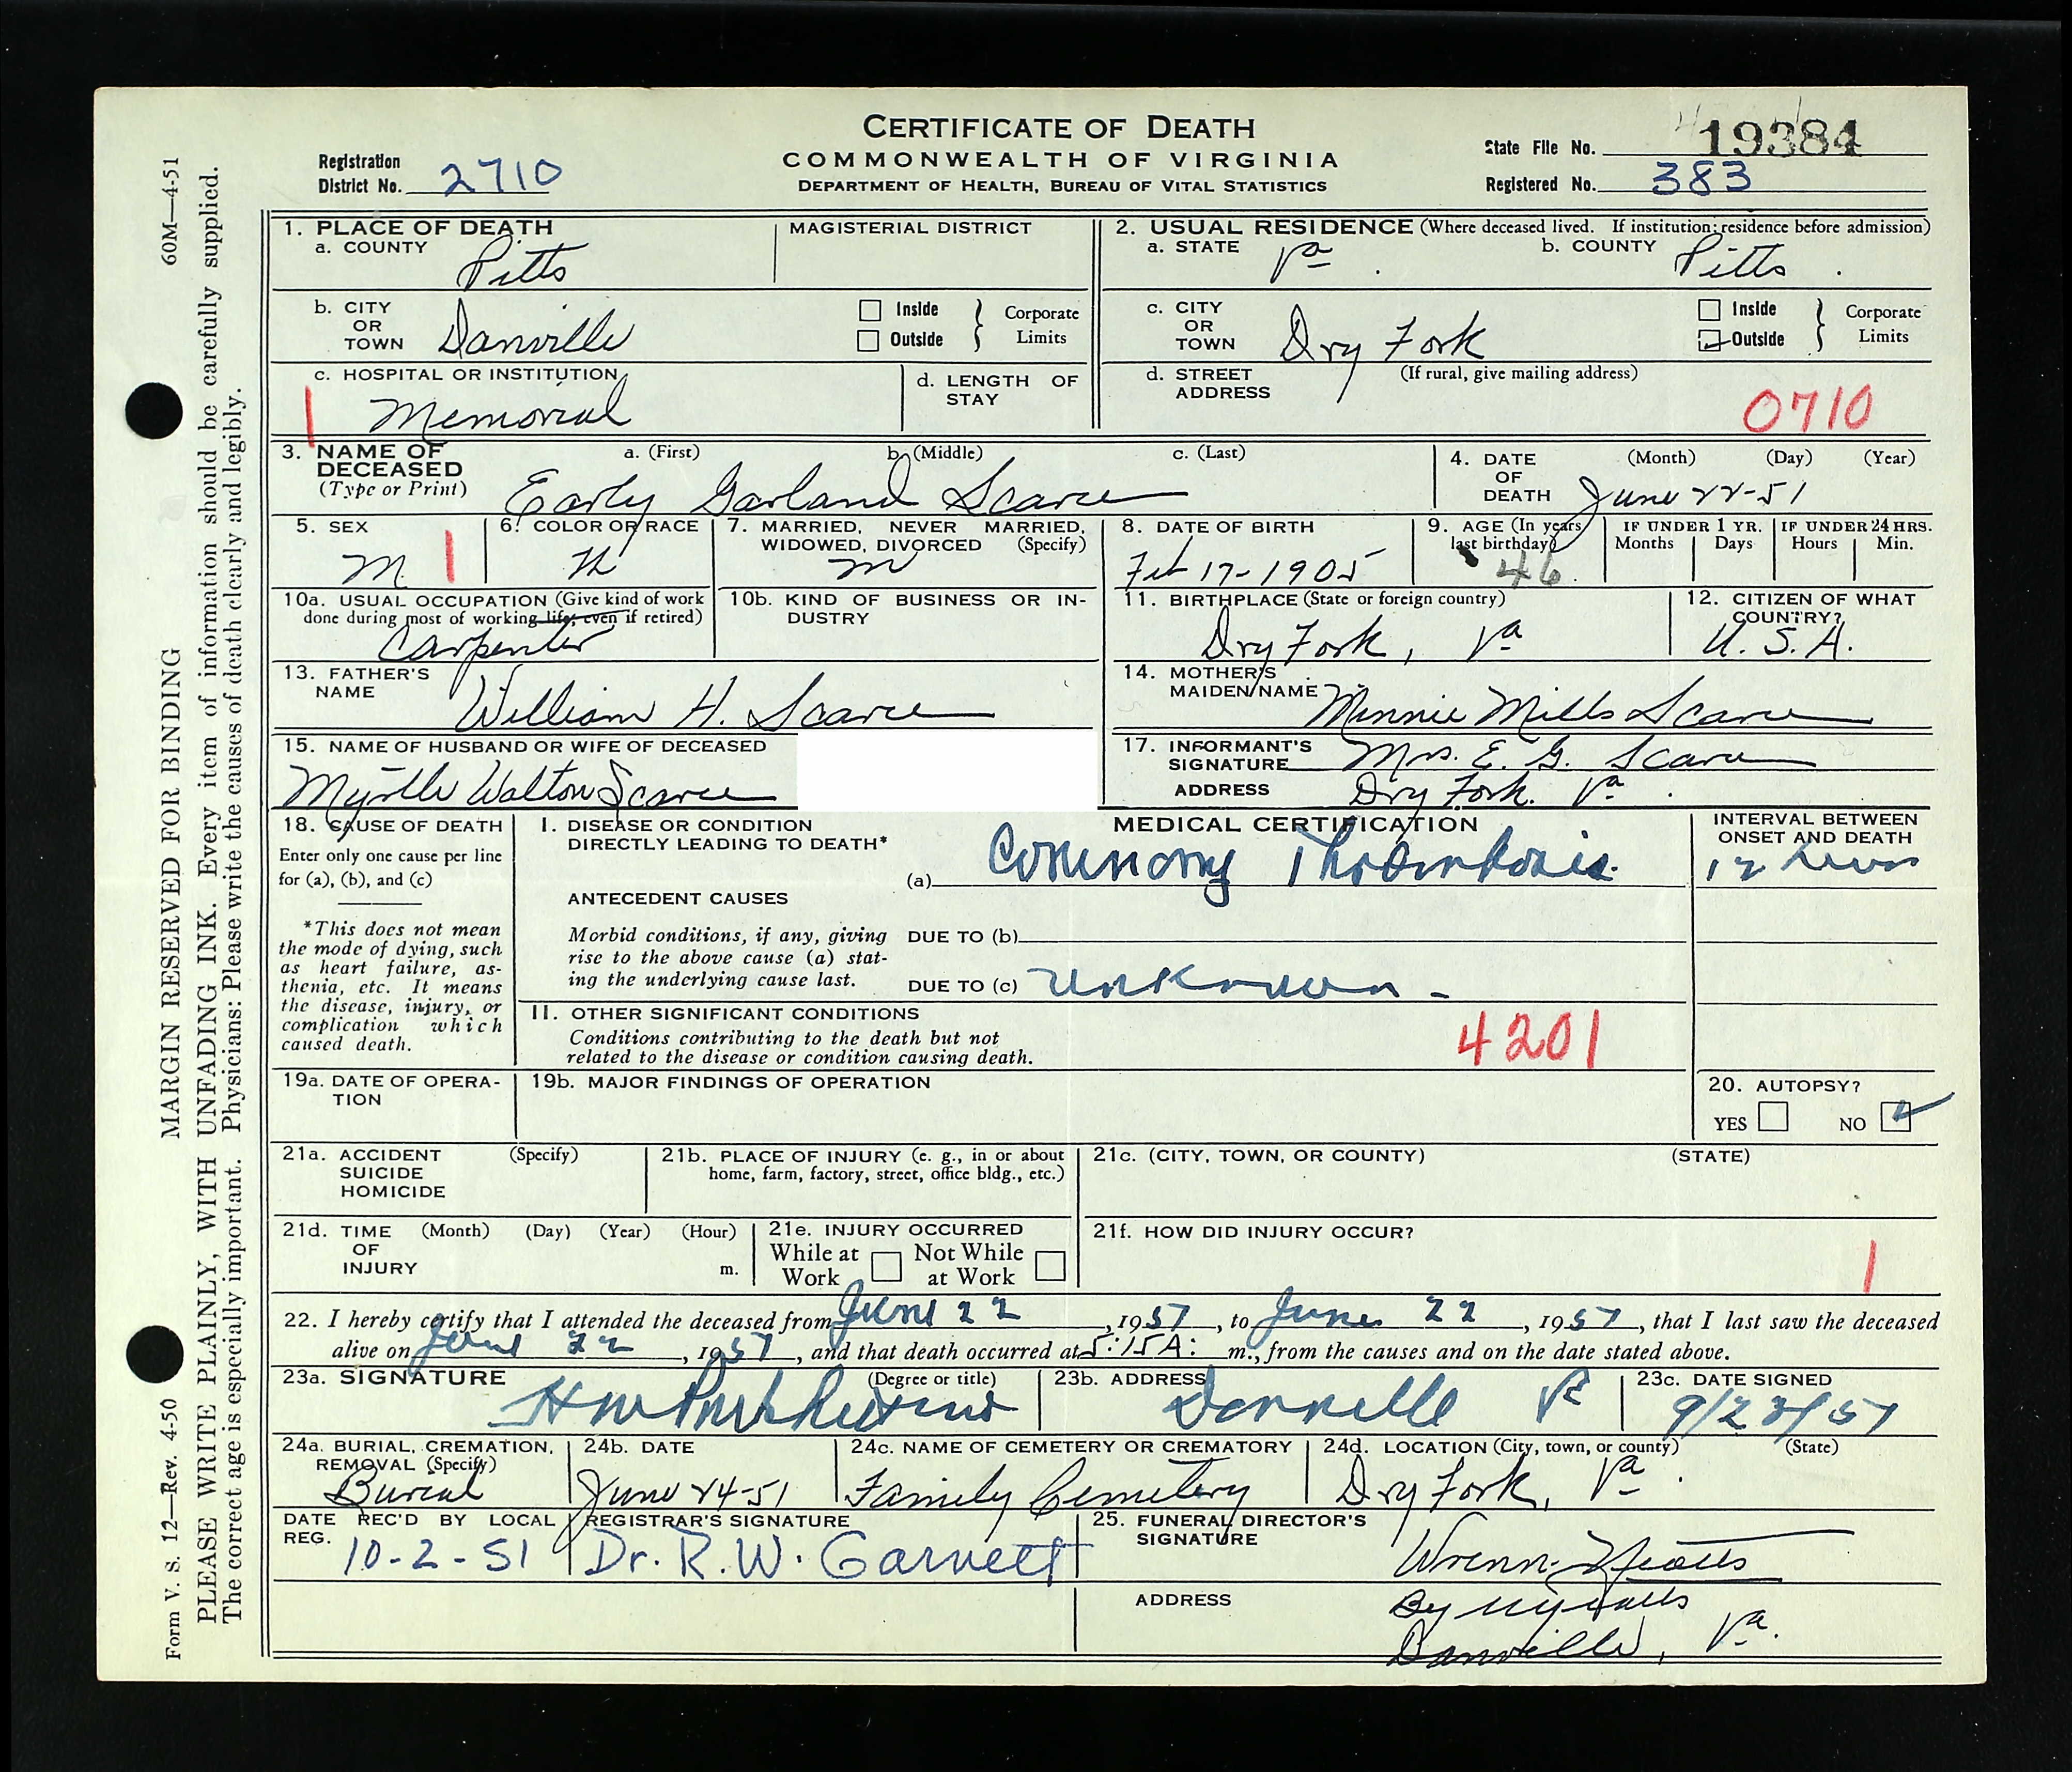 CERTIFICATE OF DEATH
COMMONWEALTH OF VIRGINIA
DEPARTMENT OF HEALTH, BUREAU OF VITAL STATISTICS
Registration District No. 2710
State File No. 19384
Registered No. 383
1. PLACE OF DEATH
a. COUNTY Pitts
MAGISTERIAL DISTRICT
2. USUAL RESIDENCE (Where deceased lived. If institution: residence before admission)
a. STATE Va
b. COUNTY Pitts
b. CITY OR TOWN Danville
Inside
Outside
Corporate Limits
c. CITY OR TOWN Dry Fork
Inside
Outside
Corporate Limits
c. HOSPITAL OR INSTITUTION Memorial
1
d. LENGTH OF STAY
d. STREET ADDRESS
(If rural, give mailing address)
0710
3. NAME OF DECEASED (Type or Print)
a. (First) b. (Middle) c. (Last)
Early Garland Scarce
4. DATE OF DEATH (Month) (Day) (Year)
June 22-51
5. SEX M 1
6. COLOR OR RACE
7. MARRIED, NEVER MARRIED, WIDOWED, DIVORCED (Specify) M
8. DATE OF BIRTH Feb 17-1905
9. AGE (In years last birthday) 46
IF UNDER 1 YR. Months Days
IF UNDER 24 HRS. Hours Min.
10a. USUAL OCCUPATION (Give kind of work done during most of working life, even if retired)
Carpenter
10b. KIND OF BUSINESS OR INDUSTRY
11. BIRTHPLACE (State or foreign country)
Dry Fork, Va
12. CITIZEN OF WHAT COUNTRY?
U.S.A.
13. FATHER'S NAME William H. Scarce
14. MOTHER'S MAIDEN NAME Minnie Mills Scarce
15. NAME OF HUSBAND OR WIFE OF DECEASED
Myrtle Walton Scarce
17. INFORMANT'S SIGNATURE Mrs. E. G. Scarce
ADDRESS Dry Fork. Va.
18. CAUSE OF DEATH
Enter only one cause per line for (a), (b), and (c)
*This does not mean the mode of dying, such as heart failure, asthenia, etc. It means the disease, injury, or complication which caused death.
MEDICAL CERTIFICATION
INTERVAL BETWEEN ONSET AND DEATH
I. DISEASE OR CONDITION DIRECTLY LEADING TO DEATH*
(a) Coronary Thrombosis.
12 hours
ANTECEDENT CAUSES
Morbid conditions, if any, giving rise to the above cause (a) stating the underlying cause last.
DUE TO (b)
DUE TO (c) unknown -
II. OTHER SIGNIFICANT CONDITIONS
Conditions contributing to the death but not related to the disease or condition causing death.
4201
19a. DATE OF OPERATION
19b. MAJOR FINDINGS OF OPERATION
20. AUTOPSY?
YES NO
21a. ACCIDENT SUICIDE HOMICIDE (Specify)
21b. PLACE OF INJURY (e. g., in or about home, farm, factory, street, office bldg., etc.)
21c. (CITY, TOWN, OR COUNTY) (STATE)
21d. TIME OF INJURY (Month) (Day) (Year) (Hour) m.
21e. INJURY OCCURRED
While at Work Not While at Work
21f. HOW DID INJURY OCCUR?
1
22. I hereby certify that I attended the deceased from June 22, 1951, to June 22, 1951, that I last saw the deceased
alive on June 22, 1951, and that death occurred at 5:15 A: m., from the causes and on the date stated above.
23a. SIGNATURE (Degree or title)
23b. ADDRESS Danville Va
23c. DATE SIGNED 9/23/51
24a. BURIAL, CREMATION, REMOVAL (Specify) Burial
24b. DATE June 24-51
24c. NAME OF CEMETERY OR CREMATORY Family Cemetery
24d. LOCATION (City, town, or county) (State) Dry Fork, Va.
DATE REC'D BY LOCAL REG. 10-2-51
REGISTRAR'S SIGNATURE Dr. R. W. Garnett
25. FUNERAL DIRECTOR'S SIGNATURE Wrenn-Yeatts
ADDRESS By
Danville, Va.
60M—4-51
MARGIN RESERVED FOR BINDING
PLEASE WRITE PLAINLY, WITH UNFADING INK. Every item of information should be carefully supplied.
The correct age is especially important. Physicians: Please write the causes of death clearly and legibly.
Form V. S. 12—Rev. 4-50